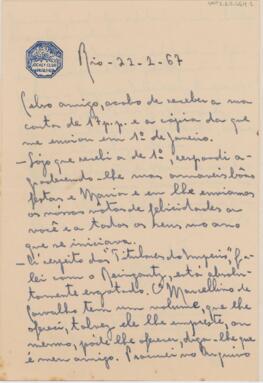 JOCKEY CLUB
Rio - 22-2-67
Celso amigo, acabo de receber a sua
carta de 17 p.p. e a cópia da que
me enviou em 1º de Janeiro.
- Logo que recebi a de 1º, respondi a-
gradecendo-lhe suas amaveis boas
festas e Maria e eu lhe enviamos
os nossos votos de felicidades a
você e a todos os seus no ano
que se iniciava.
- A respeito dos "Titulares do Imperio", fa-
lei com o está absolu-
tamente esgotado. O Marcellino de
Carvalho tem um volume, que lhe
ofereci, talvez ele lhe empreste, ou
mesmo, pode lhe oferecer, diga-lhe que
é meu amigo. Procurei no Arquivo